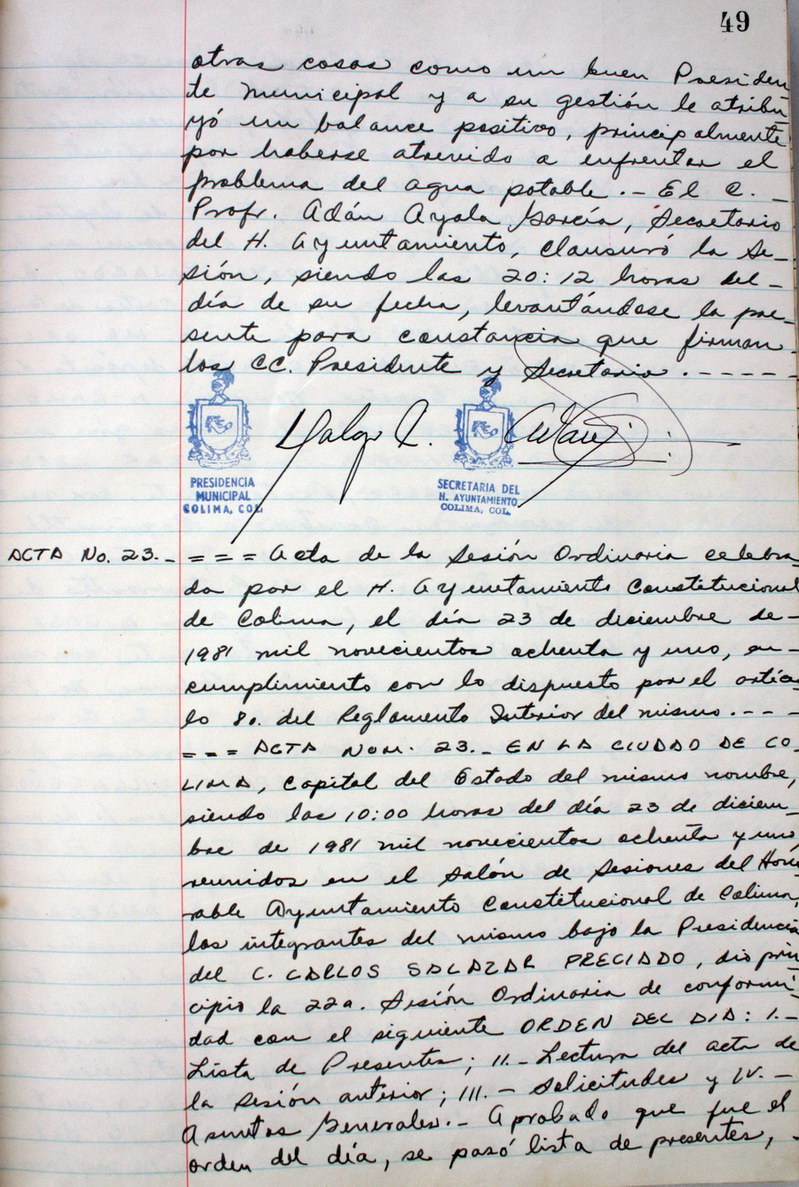 49
otras cosas como un buen Presiden
te Municipal y a su gestión le atribu
yó un balance positivo, principalmente
por haberse atrevido a enfrentar el
problema del agua potable.- El C. -
Profr. Adán Ayala García, Secretario
del H. Ayuntamiento, clausuró la Se-
sión, siendo las 20:12 horas del -
día de su fecha, levantándose la pre-
sente para constancia que firman
los CC. Presidente y Secretario.-----
PRESIDENCIA
MUNICIPAL
COLIMA, COL.
SECRETARIA DEL
H. AYUNTAMIENTO
COLIMA, COL.
ACTA No. 23.- === Acta de la Sesión Ordinaria celebra
da por el H. Ayuntamiento Constitucional
de Colima, el día 23 de diciembre de-
1981 mil novecientos ochenta y uno, en-
cumplimiento con lo dispuesto por el artícu
lo 8o. del Reglamento Interior del mismo.---
=== ACTA NUM. 23.- EN LA CIUDAD DE CO-
LIMA, Capital del Estado del mismo nombre,
siendo las 10:00 horas del día 23 de diciem-
bre de 1981 mil novecientos ochenta y uno,
reunidos en el Salón de Sesiones del Hono
rable Ayuntamiento Constitucional de Colima,
los integrantes del mismo bajo la Presidencia
del C. CARLOS SALAZAR PRECIADO, dio prin
cipio la 22a. Sesión Ordinaria de conformi-
dad con el siguiente ORDEN DEL DIA: I.-
Lista de Presentes; II.- Lectura del acta de
la sesión anterior; III.- Solicitudes y IV.-
Asuntos Generales.- Aprobado que fue el
orden del día, se pasó lista de presentes, -